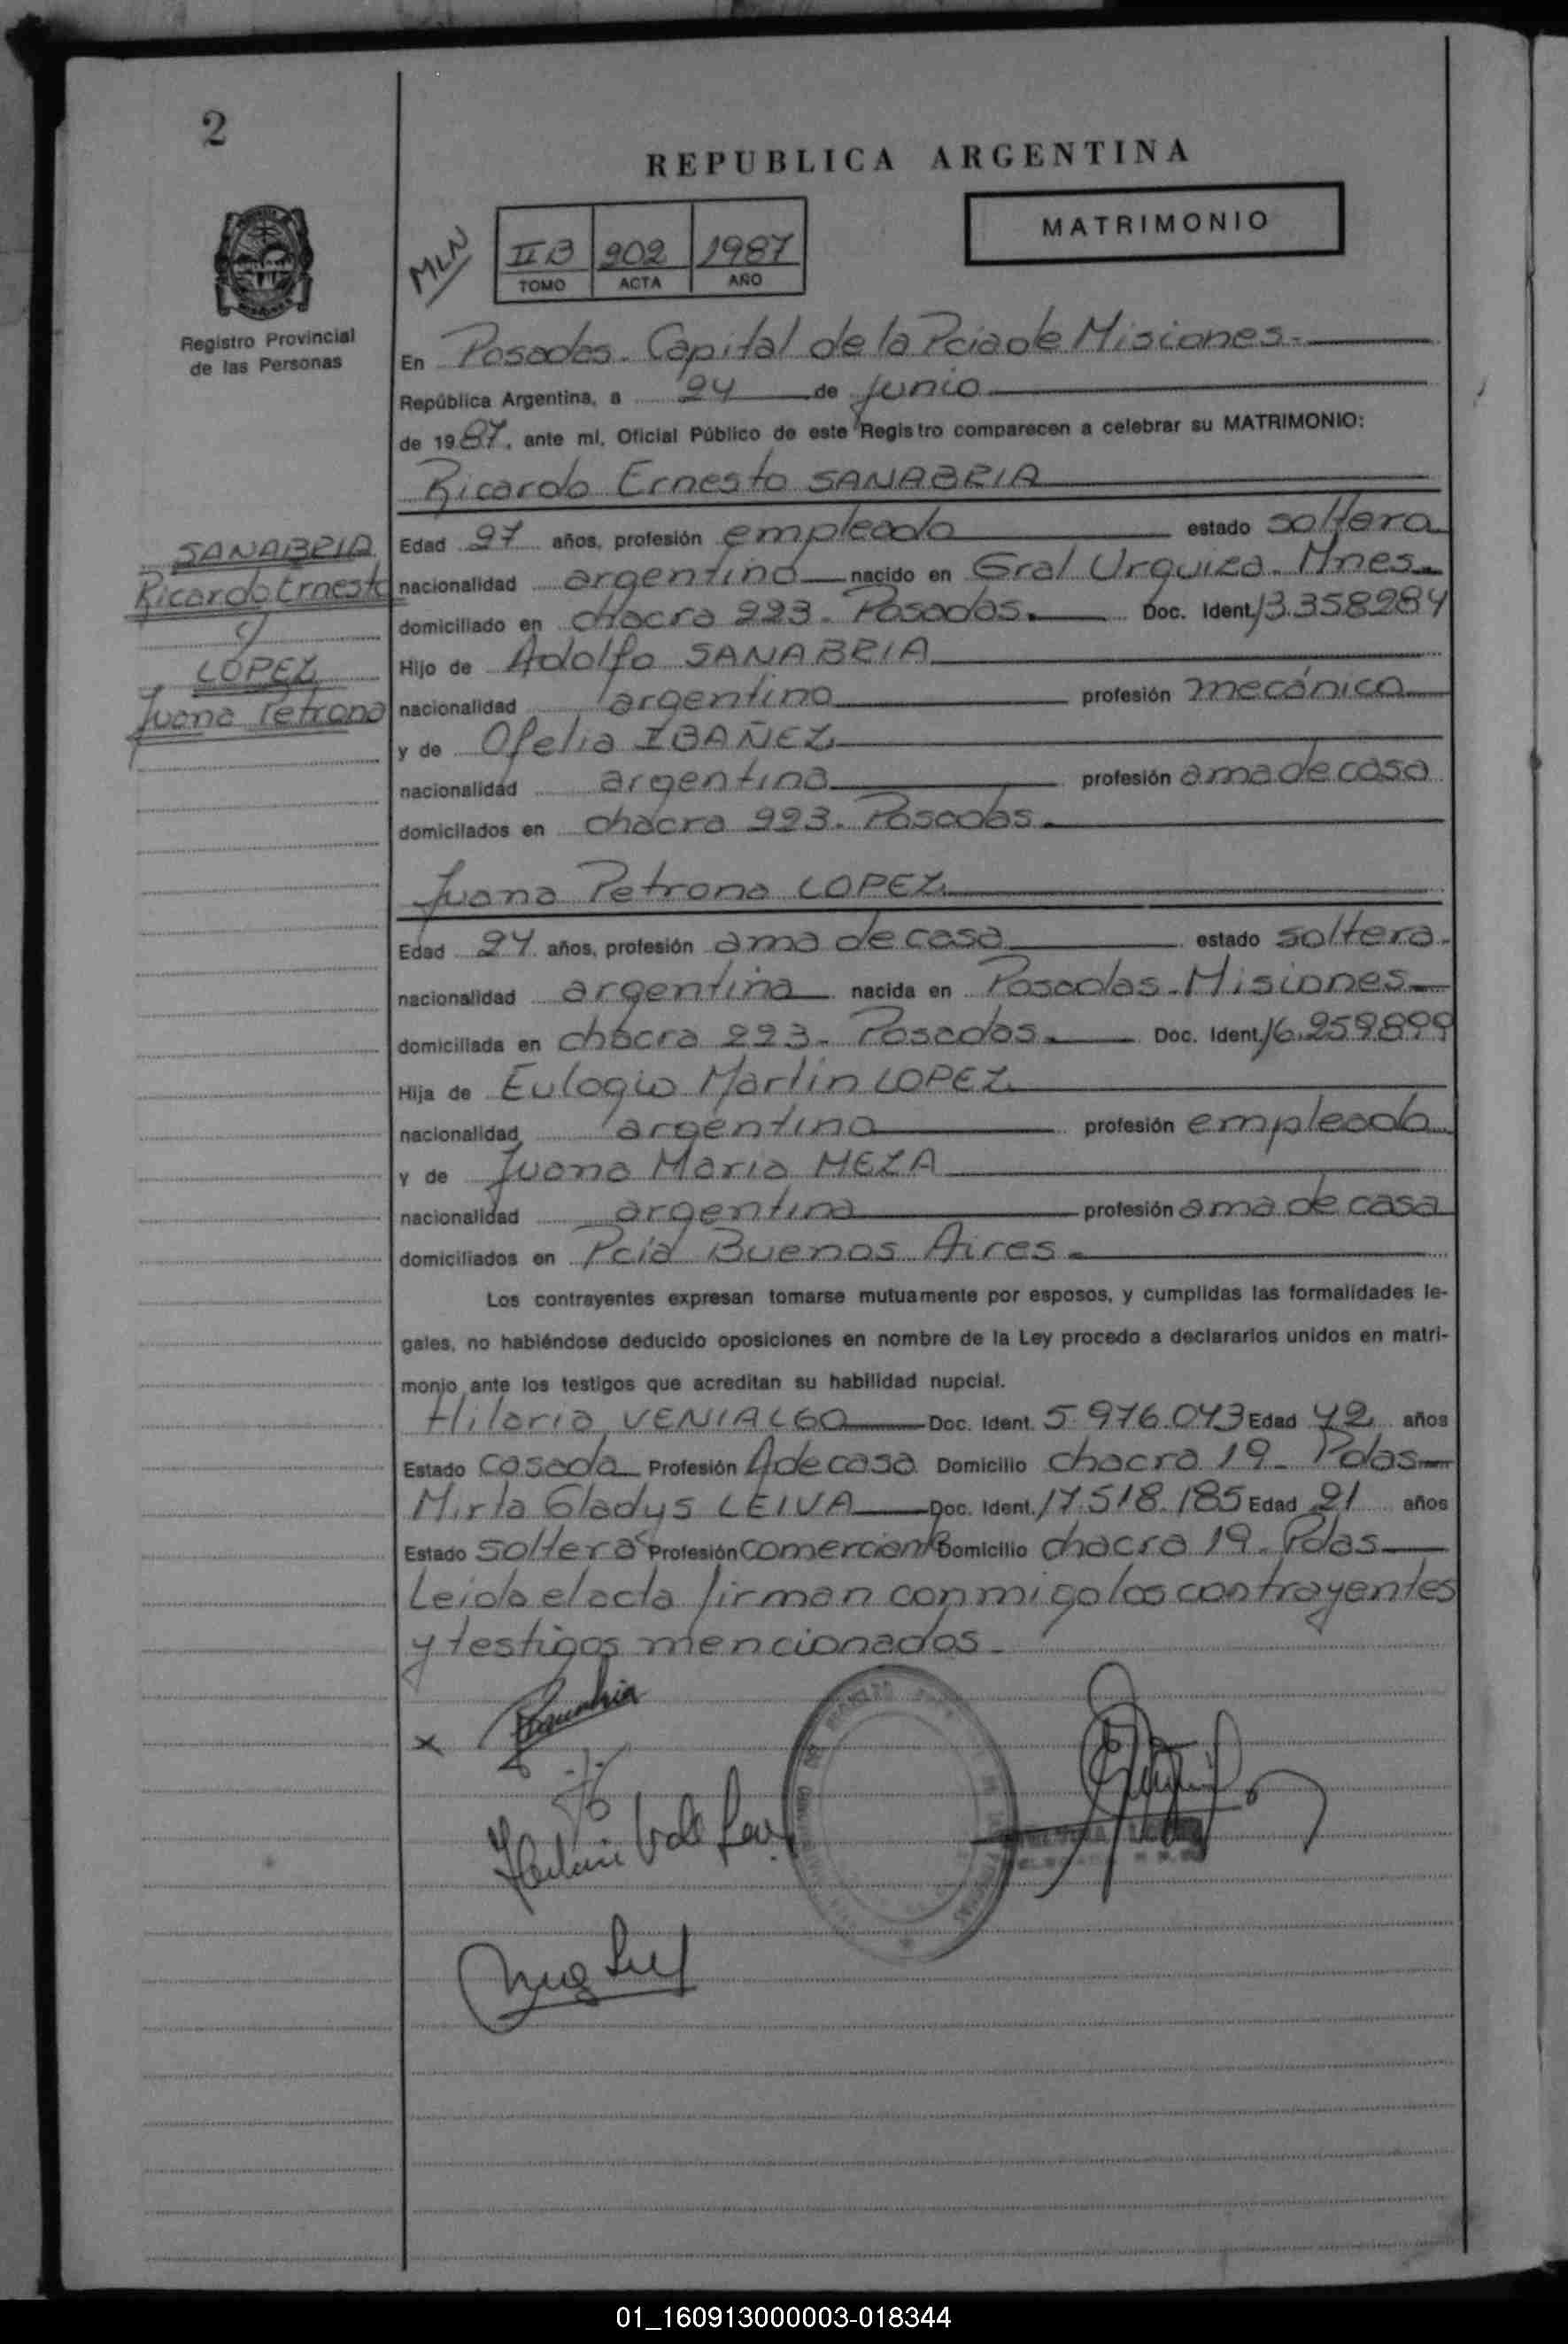 2
REPUBLICA ARGENTINA
MATRIMONIO
MLN
II B 202 1987
TOMO ACTA AÑO
Registro Provincial
de las Personas
En Posadas. Capital de la Pcia de Misiones.
República Argentina, a 24 de junio
de 1987, ante mí, Oficial Público de este Registro comparecen a celebrar su MATRIMONIO:
Ricardo Ernesto SANABRIA
SANABRIA
Ricardo Ernesto
y
LOPEZ
Juana Petrona
Edad 27 años, profesión empleado estado soltero
nacionalidad argentino nacido en Gral Urquiza. Mnes.
domiciliado en chacra 223. Posadas. Doc. Ident. 13.358284
Hijo de Adolfo SANABRIA
nacionalidad argentino profesión mecánico
y de Ofelia IBAÑEZ
nacionalidad argentina profesión ama de casa
domiciliados en chacra 223. Posadas.
Juana Petrona LOPEZ
Edad 24 años, profesión ama de casa estado soltera.
nacionalidad argentina nacida en Posadas. Misiones.
domiciliada en chacra 223. Posadas. Doc. Ident. 16.259899
Hija de Eulogio Martin LOPEZ
nacionalidad argentino profesión empleado
y de Juana Maria MEZA
nacionalidad argentina profesión ama de casa
domiciliados en Pcia Buenos Aires.
Los contrayentes expresan tomarse mutuamente por esposos, y cumplidas las formalidades le-
gales, no habiéndose deducido oposiciones en nombre de la Ley procedo a declararlos unidos en matri-
monio ante los testigos que acreditan su habilidad nupcial.
Hilaria VENIALGO Doc. Ident. 5.976.043 Edad 42 años
Estado casada Profesión A de casa Domicilio chacra 19. Pdas
Mirta Gladys LEIVA Doc. Ident. 17.518.185 Edad 21 años
Estado soltera Profesión comerciante Domicilio chacra 19. Pdas
Leida el acta firman conmigo los contrayentes
y testigos mencionados.
01_160913000003-018344